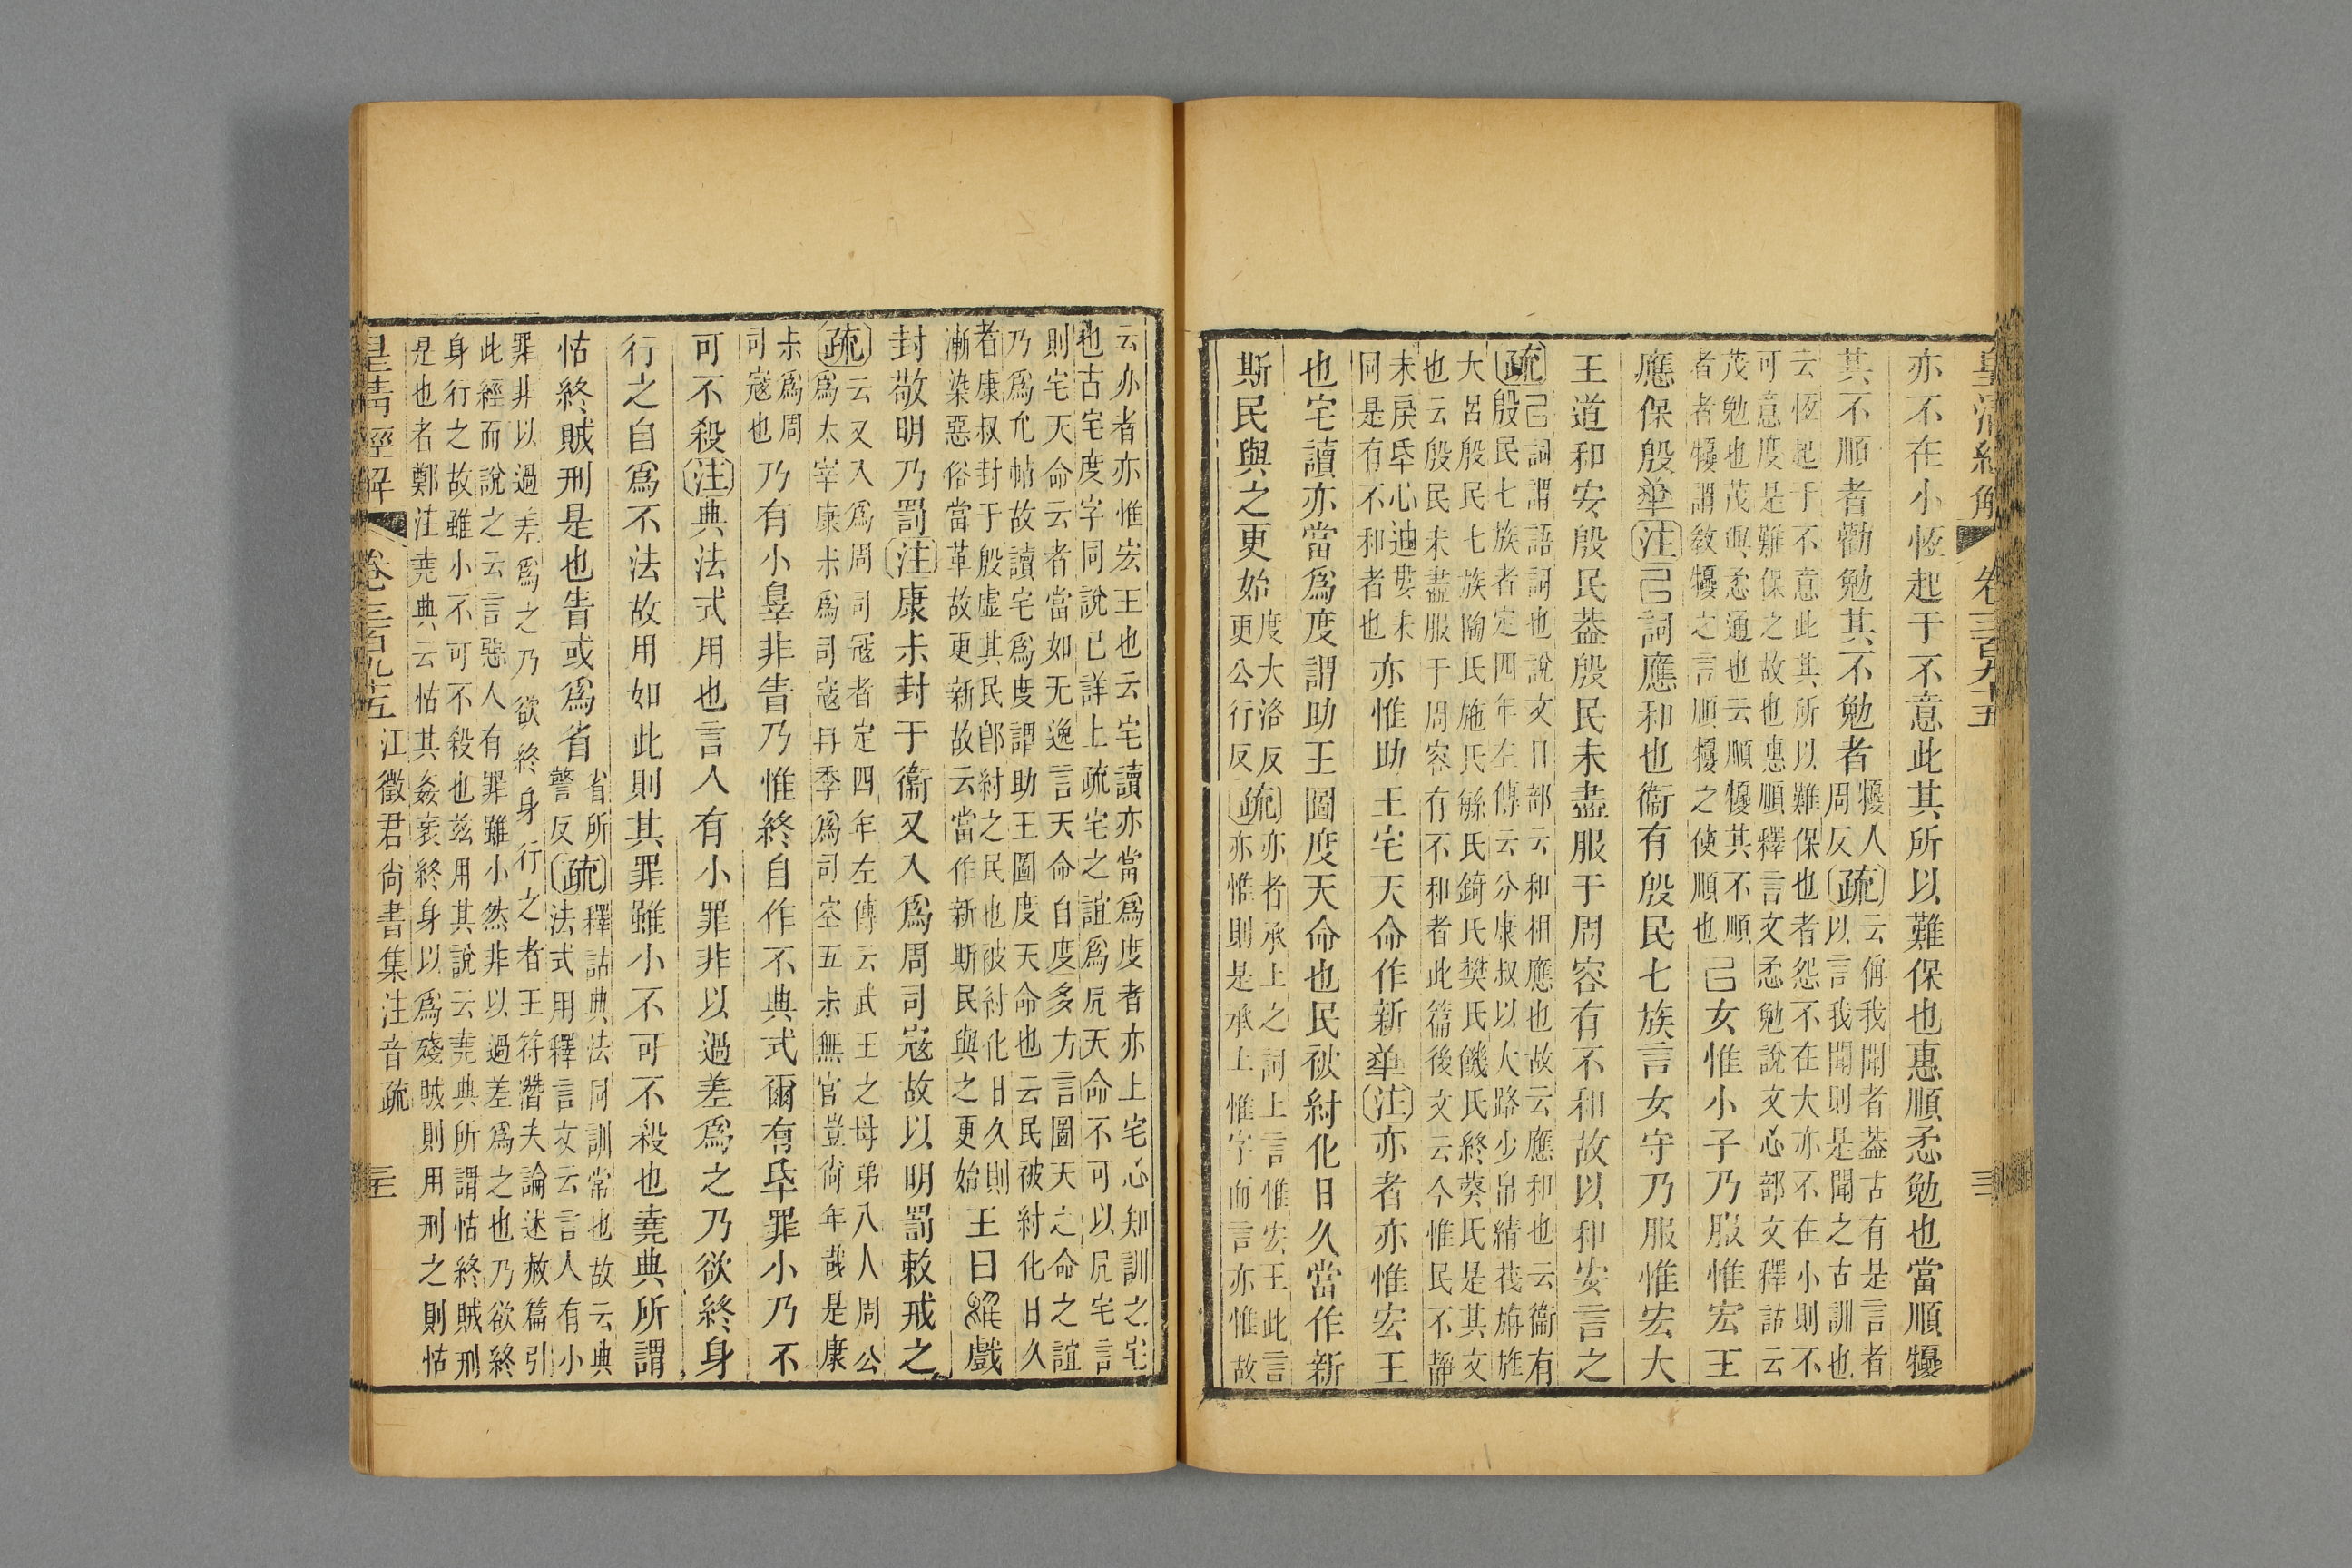 皇清經解 卷三百九十五
亦不在小恆起于不意此其所以難保也惠順懋勉也當順㹛
其不順者勸勉其不勉者㹛人周反疏云偁我聞者葢古有是言者以言我聞則是聞之古訓也
云恆起于不意此其所以難保也者怨不在大亦不在小則不
可意度是難保之故也惠順釋言文懋勉說文心部文釋詁云
茂勉也茂與懋通也云順㹛其不順
者者㹛謂教㹛之言順㹛之使順也己女惟小子乃服惟宏王
應保殷民注己詞應和也衞有殷民七族言女守乃服惟宏大
王道和安殷民葢殷民未盡服于周容有不和故以和安言之
疏己詞謂語詞也說文曰部云和相應也故云應和也云衞有
殷民七族者定四年左傳云分康叔以大路少帛綪茷旃旌
大呂殷民七族陶氏施氏緐氏錡氏樊氏饑氏終葵氏是其文
也云殷民未盡服于周容有不和者此篇後文云今惟民不靜
未戾厥心迪婁未
同是有不和者也亦惟助王宅天命作新民注亦者亦惟宏王
也宅讀亦當爲度謂助王圖度天命也民被紂化日久當作新
斯民與之更始度大洛反更公行反疏亦者承上之詞上言惟宏王此言亦惟則是承上惟字而言亦惟故
云亦者亦惟宏王也云宅讀亦當爲度者亦上宅心知訓之宅
也古宅度字同說已詳上疏宅之誼爲凥天命不可以凥宅言
則宅天命云者當如无逸言天命自度多方言圖天之命之誼
乃爲允帖故讀宅爲度謂助王圖度天命也云民被紂化日久
者康叔封于殷虛其民卽紂之民也被紂化日久則
漸染惡俗當革故更新故云當作新斯民與之更始王曰繇戲
封敬明乃罰注康尗封于衞又入爲周司寇故以明罰敕戒之
疏云又入爲周司寇者定四年左傳云武王之母弟八人周公
爲太宰康尗爲司寇冉季爲司空五尗無官豈尙年哉是康
尗爲周
司寇也乃有小辠非眚乃惟終自作不典式爾有厥罪小乃不
可不殺注典法式用也言人有小罪非以過差爲之乃欲終身
行之自爲不法故用如此則其罪雖小不可不殺也堯典所謂
怙終賊刑是也眚或爲省省所警反疏釋詁典法同訓常也故云典法式用釋言文云言人有小
罪非以過差爲之乃欲終身行之者王符潛夫論述赦篇引
此經而說之云言惡人有罪雖小然非以過差爲之也乃欲終
身行之故雖小不可不殺也兹用其說云堯典所謂怙終賊刑
是也者鄭注堯典云怙其姦衺終身以爲殘賊則用刑之則怙
皇清經解 卷三百九十五 江徵君尙書集注音疏